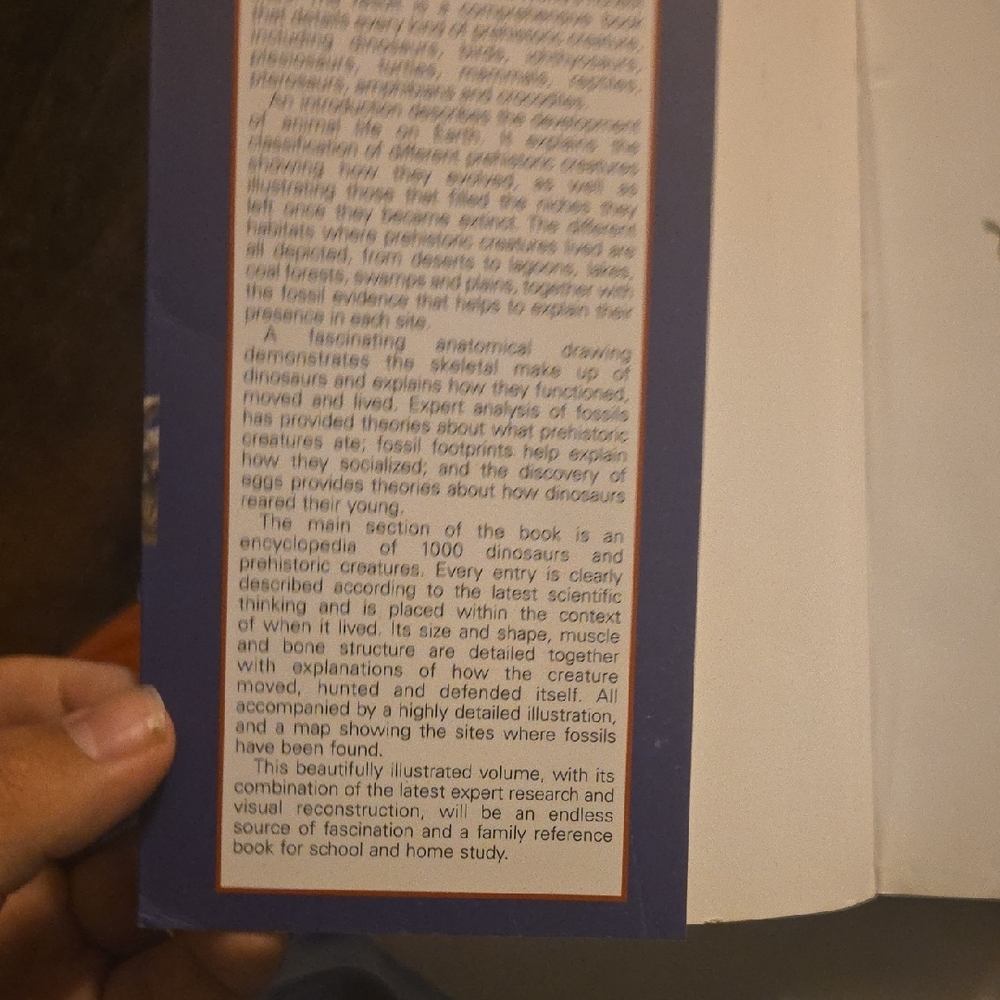 is a comprehensive book
that details every kind of prehistoric creature,
including dinosaurs, birds, ichthyosaurs,
plesiosaurs, turtles, mammals, reptiles,
pterosaurs, amphibians and crocodiles.
An introduction describes the development
of animal life on Earth. It explains the
classification of different prehistoric creatures
showing how they evolved, as well as
illustrating those that filled the niches they
left once they became extinct. The different
habitats where prehistoric creatures lived are
all depicted, from deserts to lagoons, lakes,
coal forests, swamps and plains, together with
the fossil evidence that helps to explain their
presence in each site.
A fascinating anatomical drawing
demonstrates the skeletal make up of
dinosaurs and explains how they functioned,
moved and lived. Expert analysis of fossils
has provided theories about what prehistoric
creatures ate; fossil footprints help explain
how they socialized; and the discovery of
eggs provides theories about how dinosaurs
reared their young.
The main section of the book is an
encyclopedia of 1000 dinosaurs and
prehistoric creatures. Every entry is clearly
described according to the latest scientific
thinking and is placed within the context
of when it lived. Its size and shape, muscle
and bone structure are detailed together
with explanations of how the creature
moved, hunted and defended itself. All
accompanied by a highly detailed illustration,
and a map showing the sites where fossils
have been found.
This beautifully illustrated volume, with its
combination of the latest expert research and
visual reconstruction, will be an endless
source of fascination and a family reference
book for school and home study.